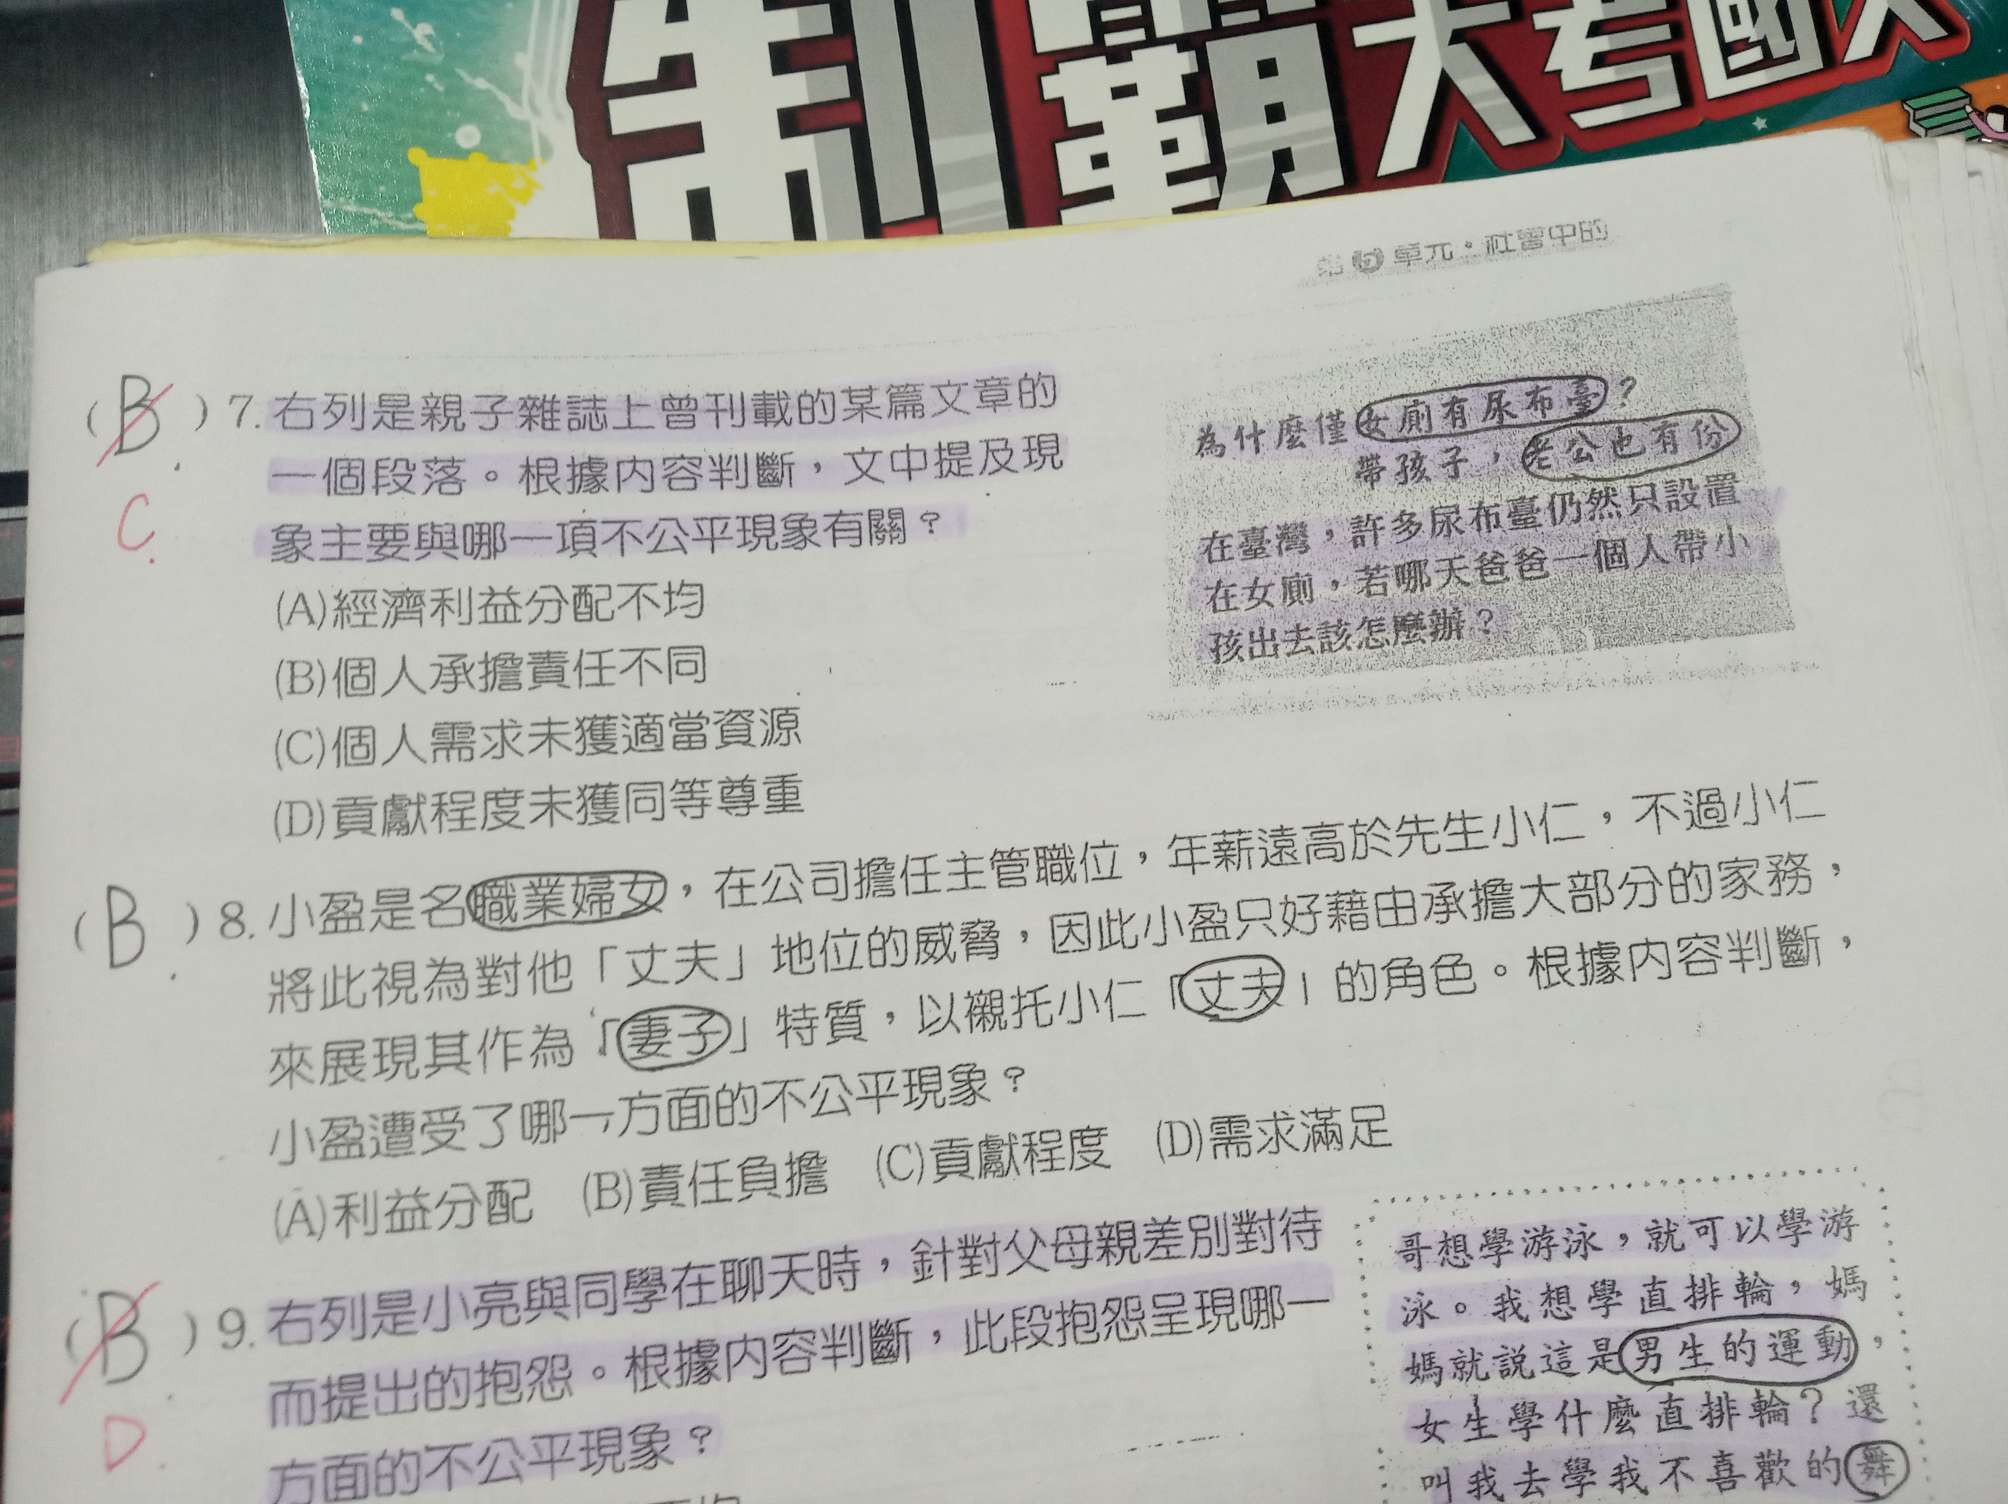 制霸大考國文
第5單元・社會中的
(B) 7. 右列是親子雜誌上曾刊載的某篇文章的
一個段落。根據內容判斷，文中提及現
C.
象主要與哪一項不公平現象有關？
(A)經濟利益分配不均
(B)個人承擔責任不同
(C)個人需求未獲適當資源
(D)貢獻程度未獲同等尊重
為什麼僅女廁有尿布臺？
帶孩子，老公也有份
在臺灣，許多尿布臺仍然只設置
在女廁，若哪天爸爸一個人帶小
孩出去該怎麼辦？
(B) 8. 小盈是名職業婦女，在公司擔任主管職位，年薪遠高於先生小仁，不過小仁
將此視為對他「丈夫」地位的威脅，因此小盈只好藉由承擔大部分的家務，
來展現其作為「妻子」特質，以襯托小仁「丈夫」的角色。根據內容判斷，
小盈遭受了哪一方面的不公平現象？
(A)利益分配 (B)責任負擔 (C)貢獻程度 (D)需求滿足
(B) 9. 右列是小亮與同學在聊天時，針對父母親差別對待
而提出的抱怨。根據內容判斷，此段抱怨呈現哪一
D.
方面的不公平現象？
哥想學游泳，就可以學游
泳。我想學直排輪，媽
媽就說這是男生的運動，
女生學什麼直排輪？還
叫我去學我不喜歡的舞